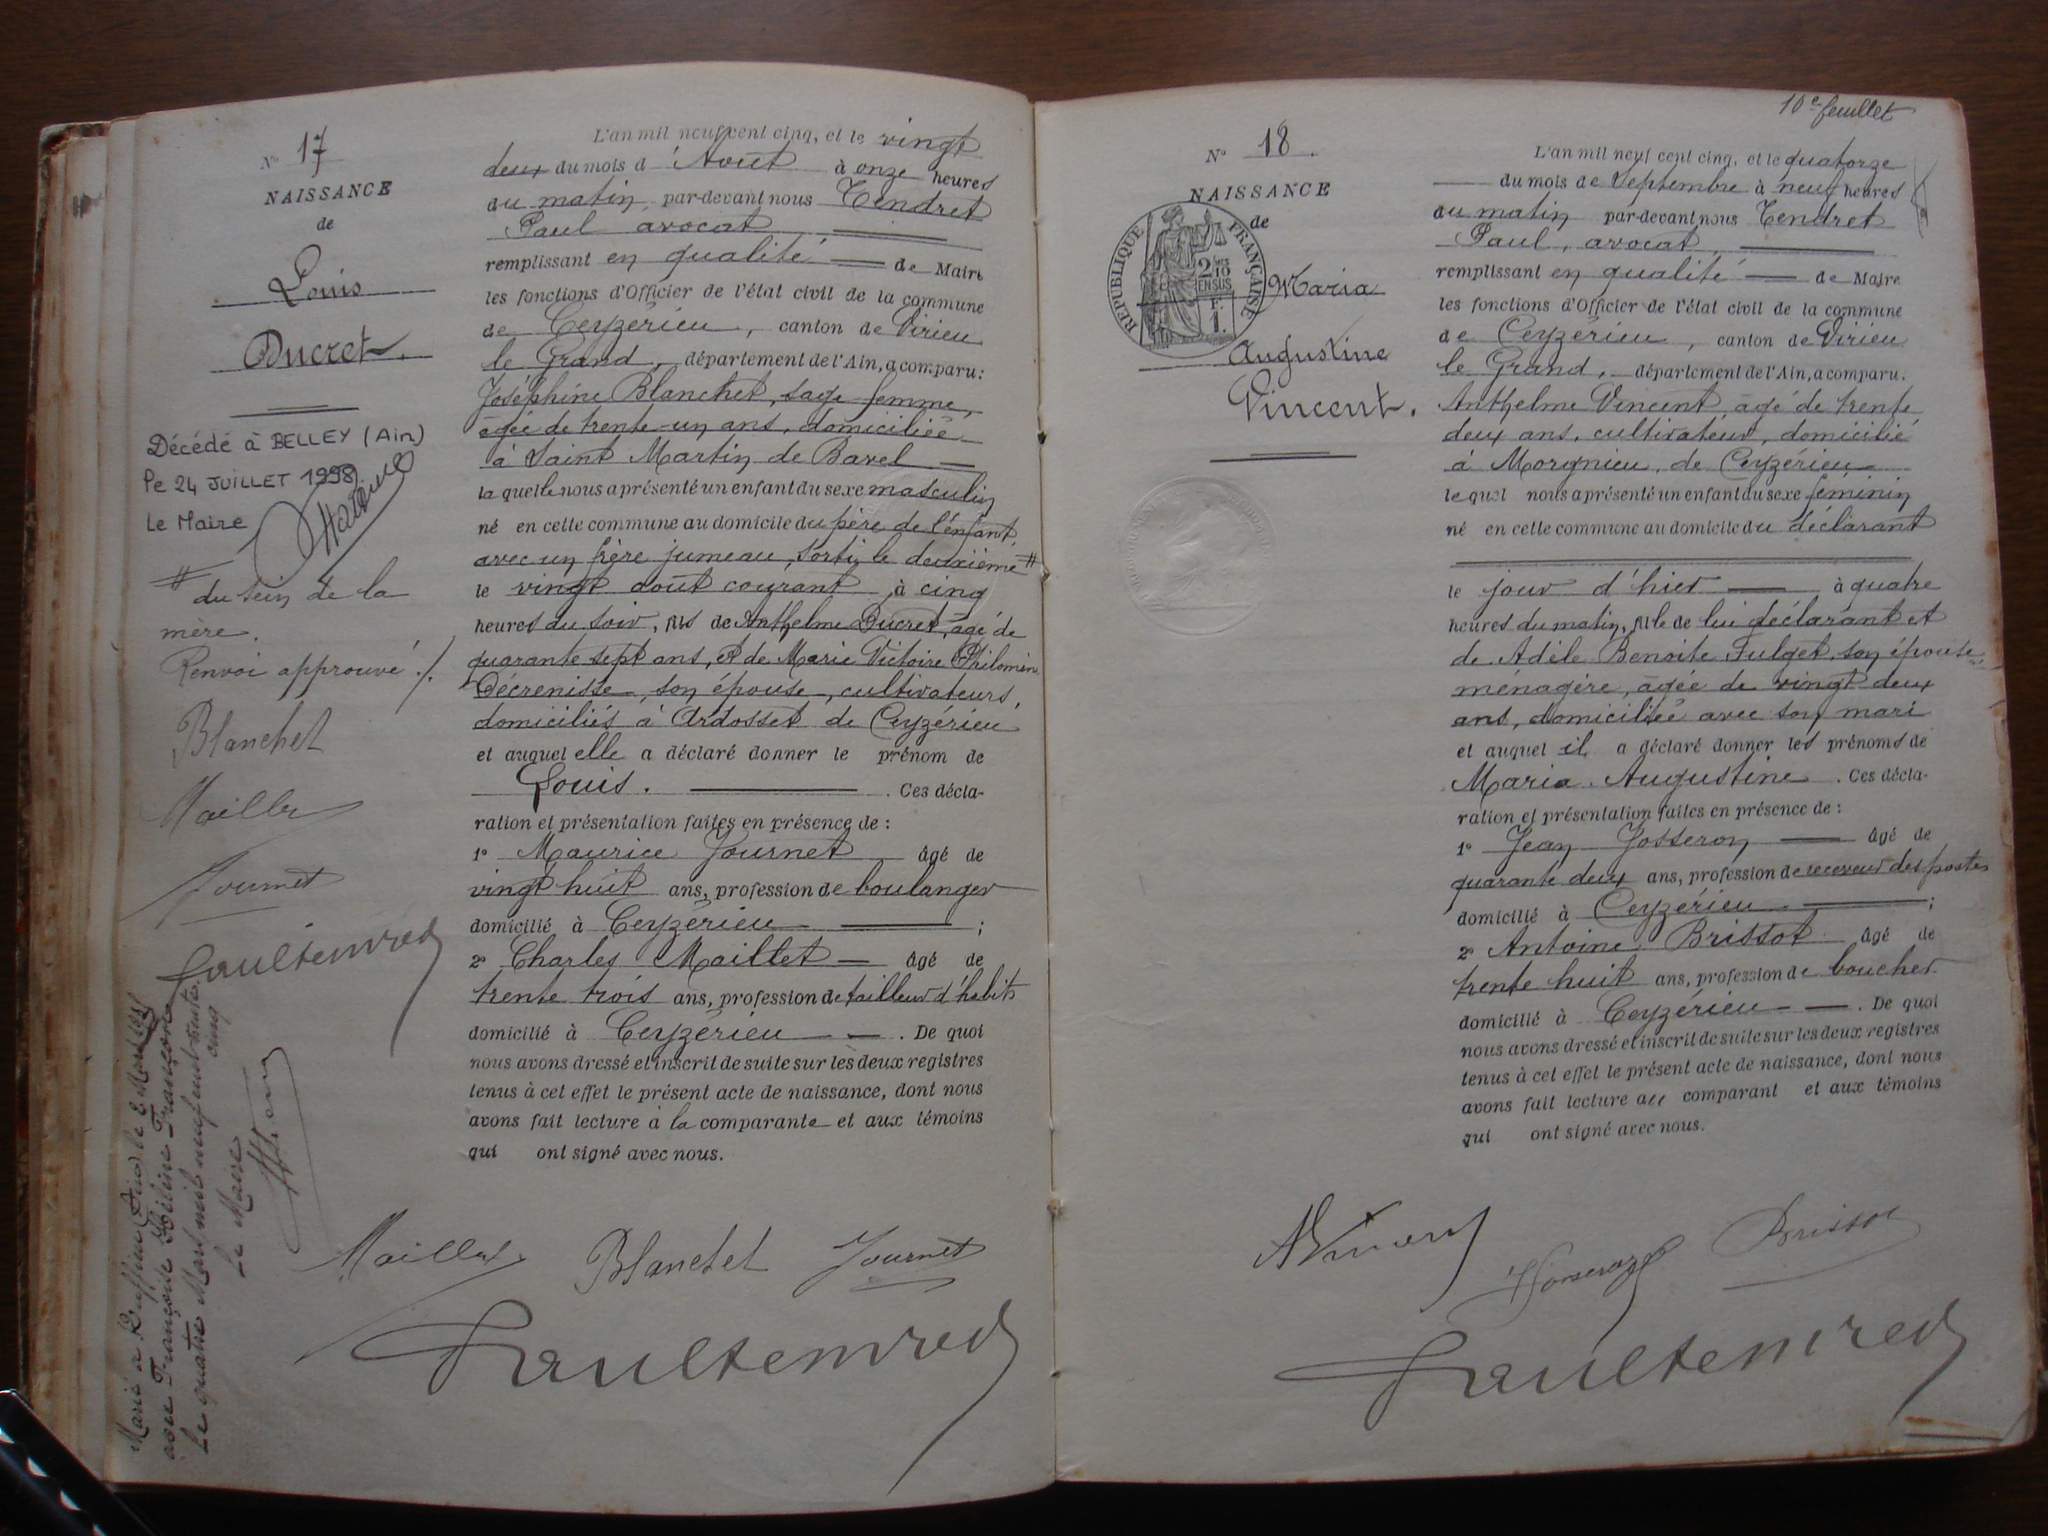 N° 17
NAISSANCE
de
Louis
Ducret.
Décédé à BELLEY (Ain)
le 24 JUILLET 1998
Le Maire
# du sein de la
mère.
Renvoi approuvé ./.
Blanchet
Maillet
Journet
Paul Tendret
Marié à Ruffieu (Ain) le 2 Mars 1935
avec Françoise Hélène Françone
Le quatre Mars mil neuf cent trente
cinq
Le Maire
L'an mil neuf cent cinq, et le vingt
deux du mois d'Août à onze heures
du matin, par-devant nous Tendret
Paul avocat
remplissant en qualité de Maire
les fonctions d'Officier de l'état civil de la commune
de Ceyzérieu, canton de Virieu
le Grand, département de l'Ain, a comparu:
Joséphine Blanchet, sage femme,
agée de trente-un ans, domiciliée
à Saint Martin de Bavel
laquelle nous a présenté un enfant du sexe masculin
né en cette commune au domicile du père de l'enfant
avec un frère jumeau, sorti le deuxième #
le vingt août courant à cinq
heures du soir, fils de Anthelme Ducret, agé de
quarante sept ans, et de Marie Victoire Philomène
Décrenisse, son épouse, cultivateurs,
domiciliés à Ardosset de Ceyzérieu
et auquel elle a déclaré donner le prénom de
Louis. . Ces décla-
ration et présentation faites en présence de :
1° Maurice Journet âgé de
vingt huit ans, profession de boulanger
domicilié à Ceyzérieu ;
2° Charles Maillet âgé de
trente trois ans, profession de tailleur d'habits
domicilié à Ceyzérieu . De quoi
nous avons dressé et inscrit de suite sur les deux registres
tenus à cet effet le présent acte de naissance, dont nous
avons fait lecture à la comparante et aux témoins
qui ont signé avec nous.
Maillet Blanchet Journet
Paul Tendret
10e feuillet
N° 18.
NAISSANCE
de
RÉPUBLIQUE FRANÇAISE
2/10 EN SUS
F. 1.
Maria
Augustine
Vincent.
L'an mil neuf cent cinq, et le quatorze
du mois de Septembre à neuf heures
du matin par-devant nous Tendret
Paul, avocat,
remplissant en qualité de Maire
les fonctions d'Officier de l'état civil de la commune
de Ceyzérieu, canton de Virieu
le Grand, département de l'Ain, a comparu.
Anthelme Vincent, agé de trente
deux ans, cultivateur, domicilié
à Morgnieu, de Ceyzérieu
lequel nous a présenté un enfant du sexe féminin
né en cette commune au domicile du déclarant
le jour d'hier à quatre
heures du matin, fille de lui déclarant et
de Adèle Benoite Fulget, son épouse,
ménagère, agée de vingt deux
ans, domiciliée avec son mari
et auquel il a déclaré donner les prénoms de
Maria Augustine . Ces décla-
ration et présentation faites en présence de :
1° Jean Josseron âgé de
quarante deux ans, profession de receveur des postes
domicilié à Ceyzérieu ;
2° Antoine Brissot âgé de
trente huit ans, profession de boucher
domicilié à Ceyzérieu . De quoi
nous avons dressé et inscrit de suite sur les deux registres
tenus à cet effet le présent acte de naissance, dont nous
avons fait lecture au comparant et aux témoins
qui ont signé avec nous.
AVincent Brissot
Paul Tendret